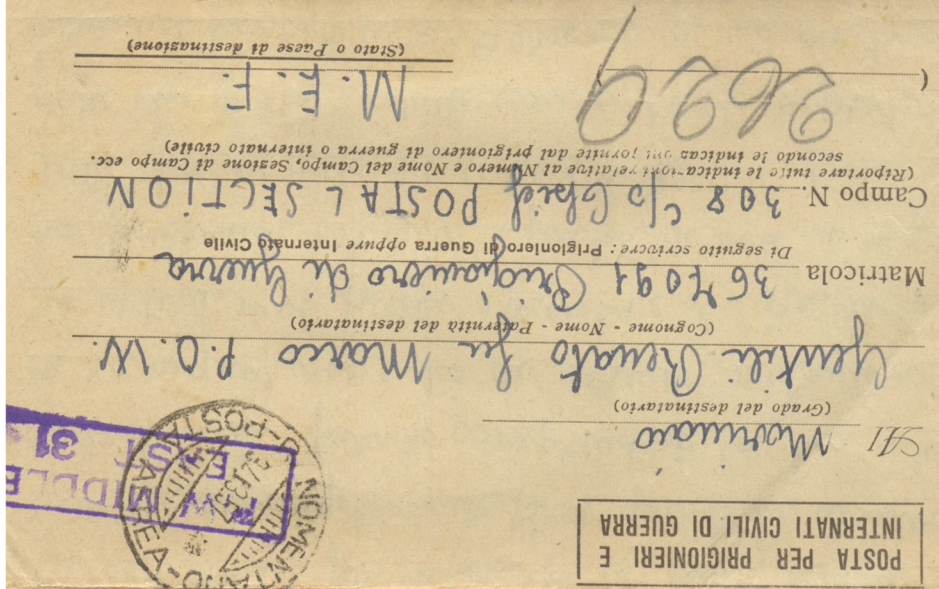 POSTA PER PRIGIONIERI E
INTERNATI CIVILI DI GUERRA
Marinaio
(Grado del destinatario)
Gentili Renato fu Marco P.O.W.
(Cognome - Nome - Paternità del destinatario)
Matricola 367091 Prigioniero di Guerra
Di seguito scrivere: Prigioniero di Guerra oppure Internato Civile
Campo N. 308 c/o Chief POSTAL SECTION
(Riportare tutte le indicazioni relative al Numero e Nome del Campo, Sezione di Campo ecc.
secondo le indicazioni fornite dal prigioniero di guerra o internato civile)
M.E.F.
(Stato o Paese di destinazione)
NOMENTANO - POSTA AEREA
P.W. MIDDLE
EAST 31